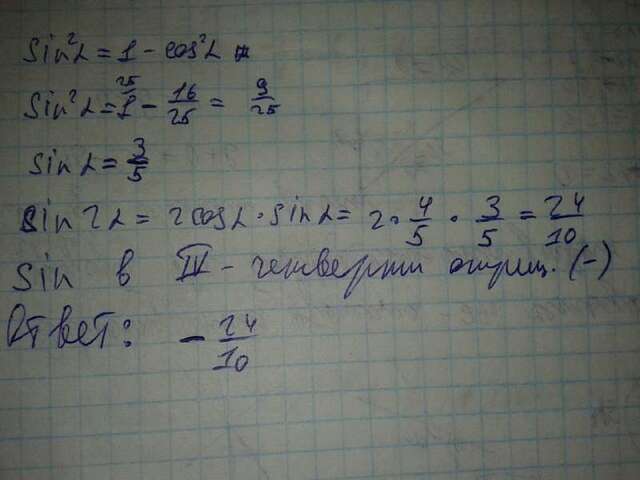 sin²α = 1 - cos²α
sin²α = 1²⁵ - 16/25 = 9/25
sin α = 3/5
sin 2α = 2cosα · sinα = 2 · 4/5 · 3/5 = 24/10
sin в IV - четверти отриц. (-)
Ответ: - 24/10